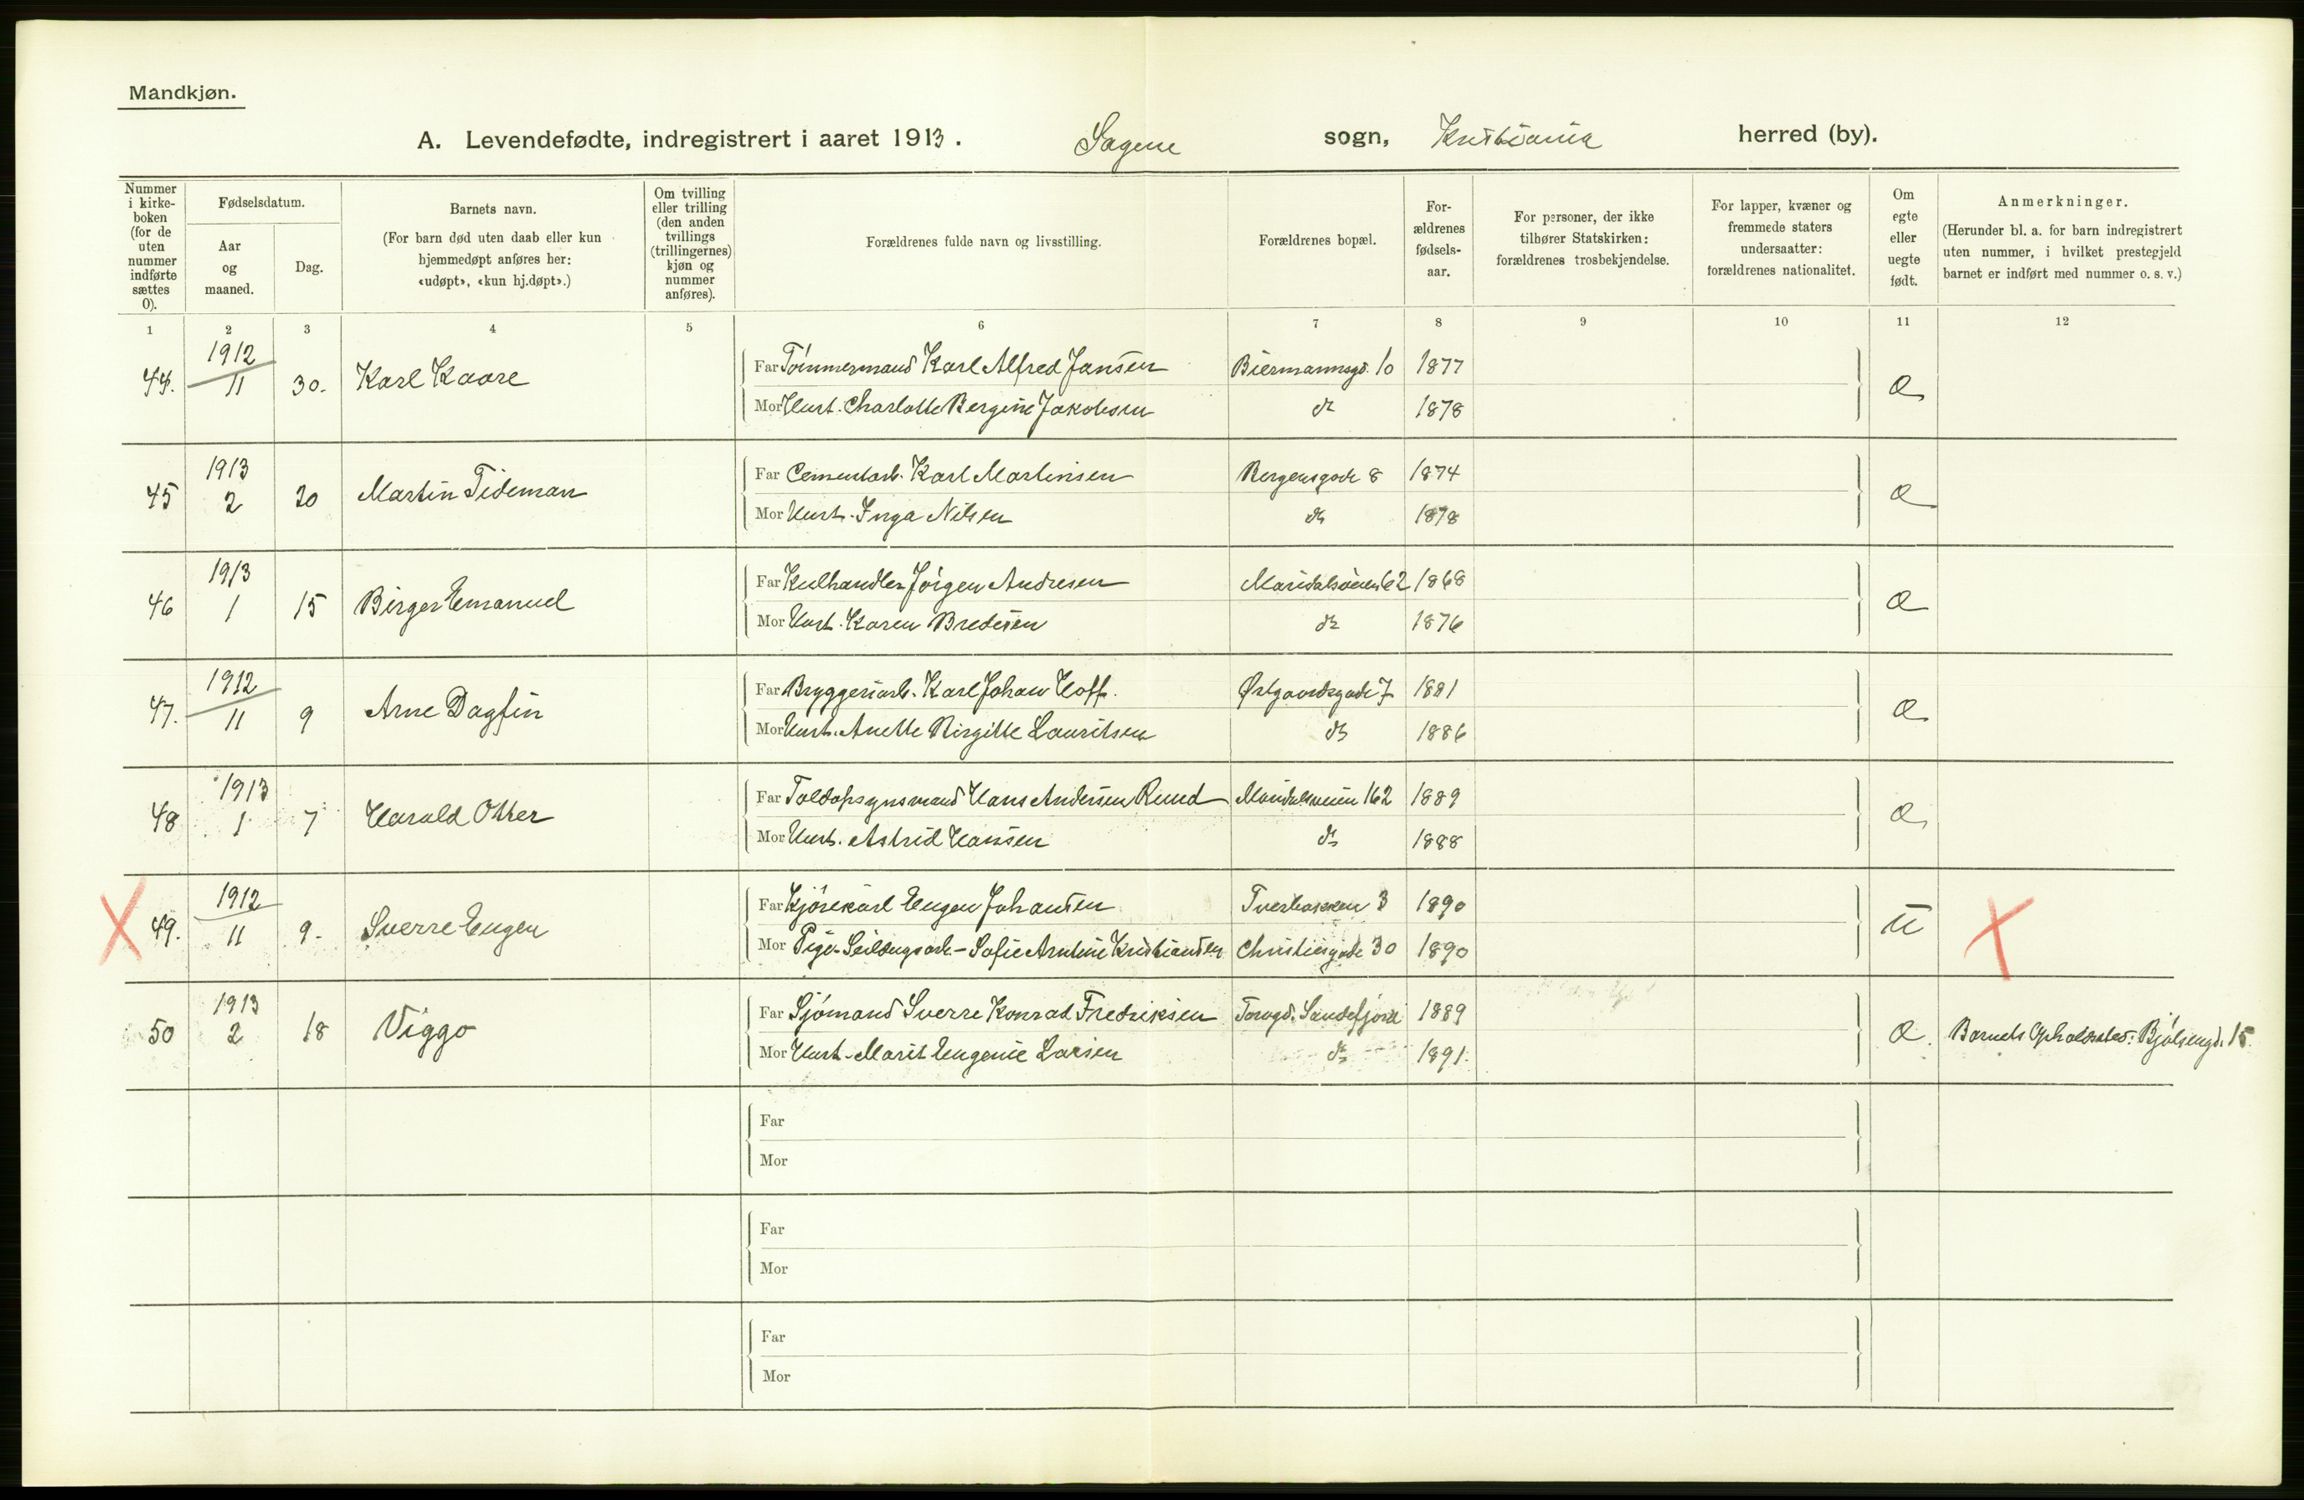 Mandkjøn.
A. Levendefødte, indregistrert i aaret 1913. Sagene sogn, Kristiania herred (by).
Nummer i kirke-boken (for de uten nummer indførte sættes 0).
Fødselsdatum.
Aar og maaned.
Dag.
Barnets navn.
(For barn død uten daab eller kun hjemmedøpt anføres her: «udøpt», «kun hj.døpt».)
Om tvilling eller trilling (den anden tvillings (trillingernes) kjøn og nummer anføres).
Forældrenes fulde navn og livsstilling.
Forældrenes bopæl.
For-ældrenes fødsels-aar.
For personer, der ikke tilhører Statskirken: forældrenes trosbekjendelse.
For lapper, kvæner og fremmede staters undersaatter: forældrenes nationalitet.
Om egte eller uegte født.
Anmerkninger.
(Herunder bl. a. for barn indregistrert uten nummer, i hvilket prestegjeld barnet er indført med nummer o. s. v.)
1 2 3 4 5 6 7 8 9 10 11 12
44. 1912 11 30. Karl Kaare Far Tømmermand Karl Alfred Jansen Biermannsgd. 10 1877 æ
Mor Hust. Charlotte Bergine Jakobsen do 1878
45 1913 2 20 Martin Tideman Far Cementarb. Karl Martinsen Bergensgade 8 1874 æ
Mor Hust. Inga Nilsen do 1878
46 1913 1 15 Birger Emanuel Far Kulhandler Jørgen Andresen Maridalsveien 62 1868 æ
Mor Hust. Karen Bredesen do 1876
47. 1912 11 9 Arne Dagfin Far Bryggeriarb. Karl Johan Hoff. Østgaardsgade 7 1881 æ
Mor Hust. Anette Birgitte Lauritsen do 1886
48 1913 1 7 Harald Otter Far Toldopsynsmand Hans Andersen Ruud Maridalsveien 162 1889 æ
Mor Hust. Astrid Hansen do 1888
X 49. 1912 11 9. Sverre Eugen Far Kjørekarl Eugen Johansen Tverbakken 3 1890 u X
Mor Pige. Seildugsarb. Sofie Arntine Kristiansen Christiesgade 30 1890
50 1913 2 18 Viggo Far Sjømand Sverre Konrad Fredriksen Torvgd. Sandefjord 1889 æ. Barnets Opholdssted: Bjølsengd. 15.
Mor Hust. Marit Eugenie Larsen do 1891.
Far
Mor
Far
Mor
Far
Mor